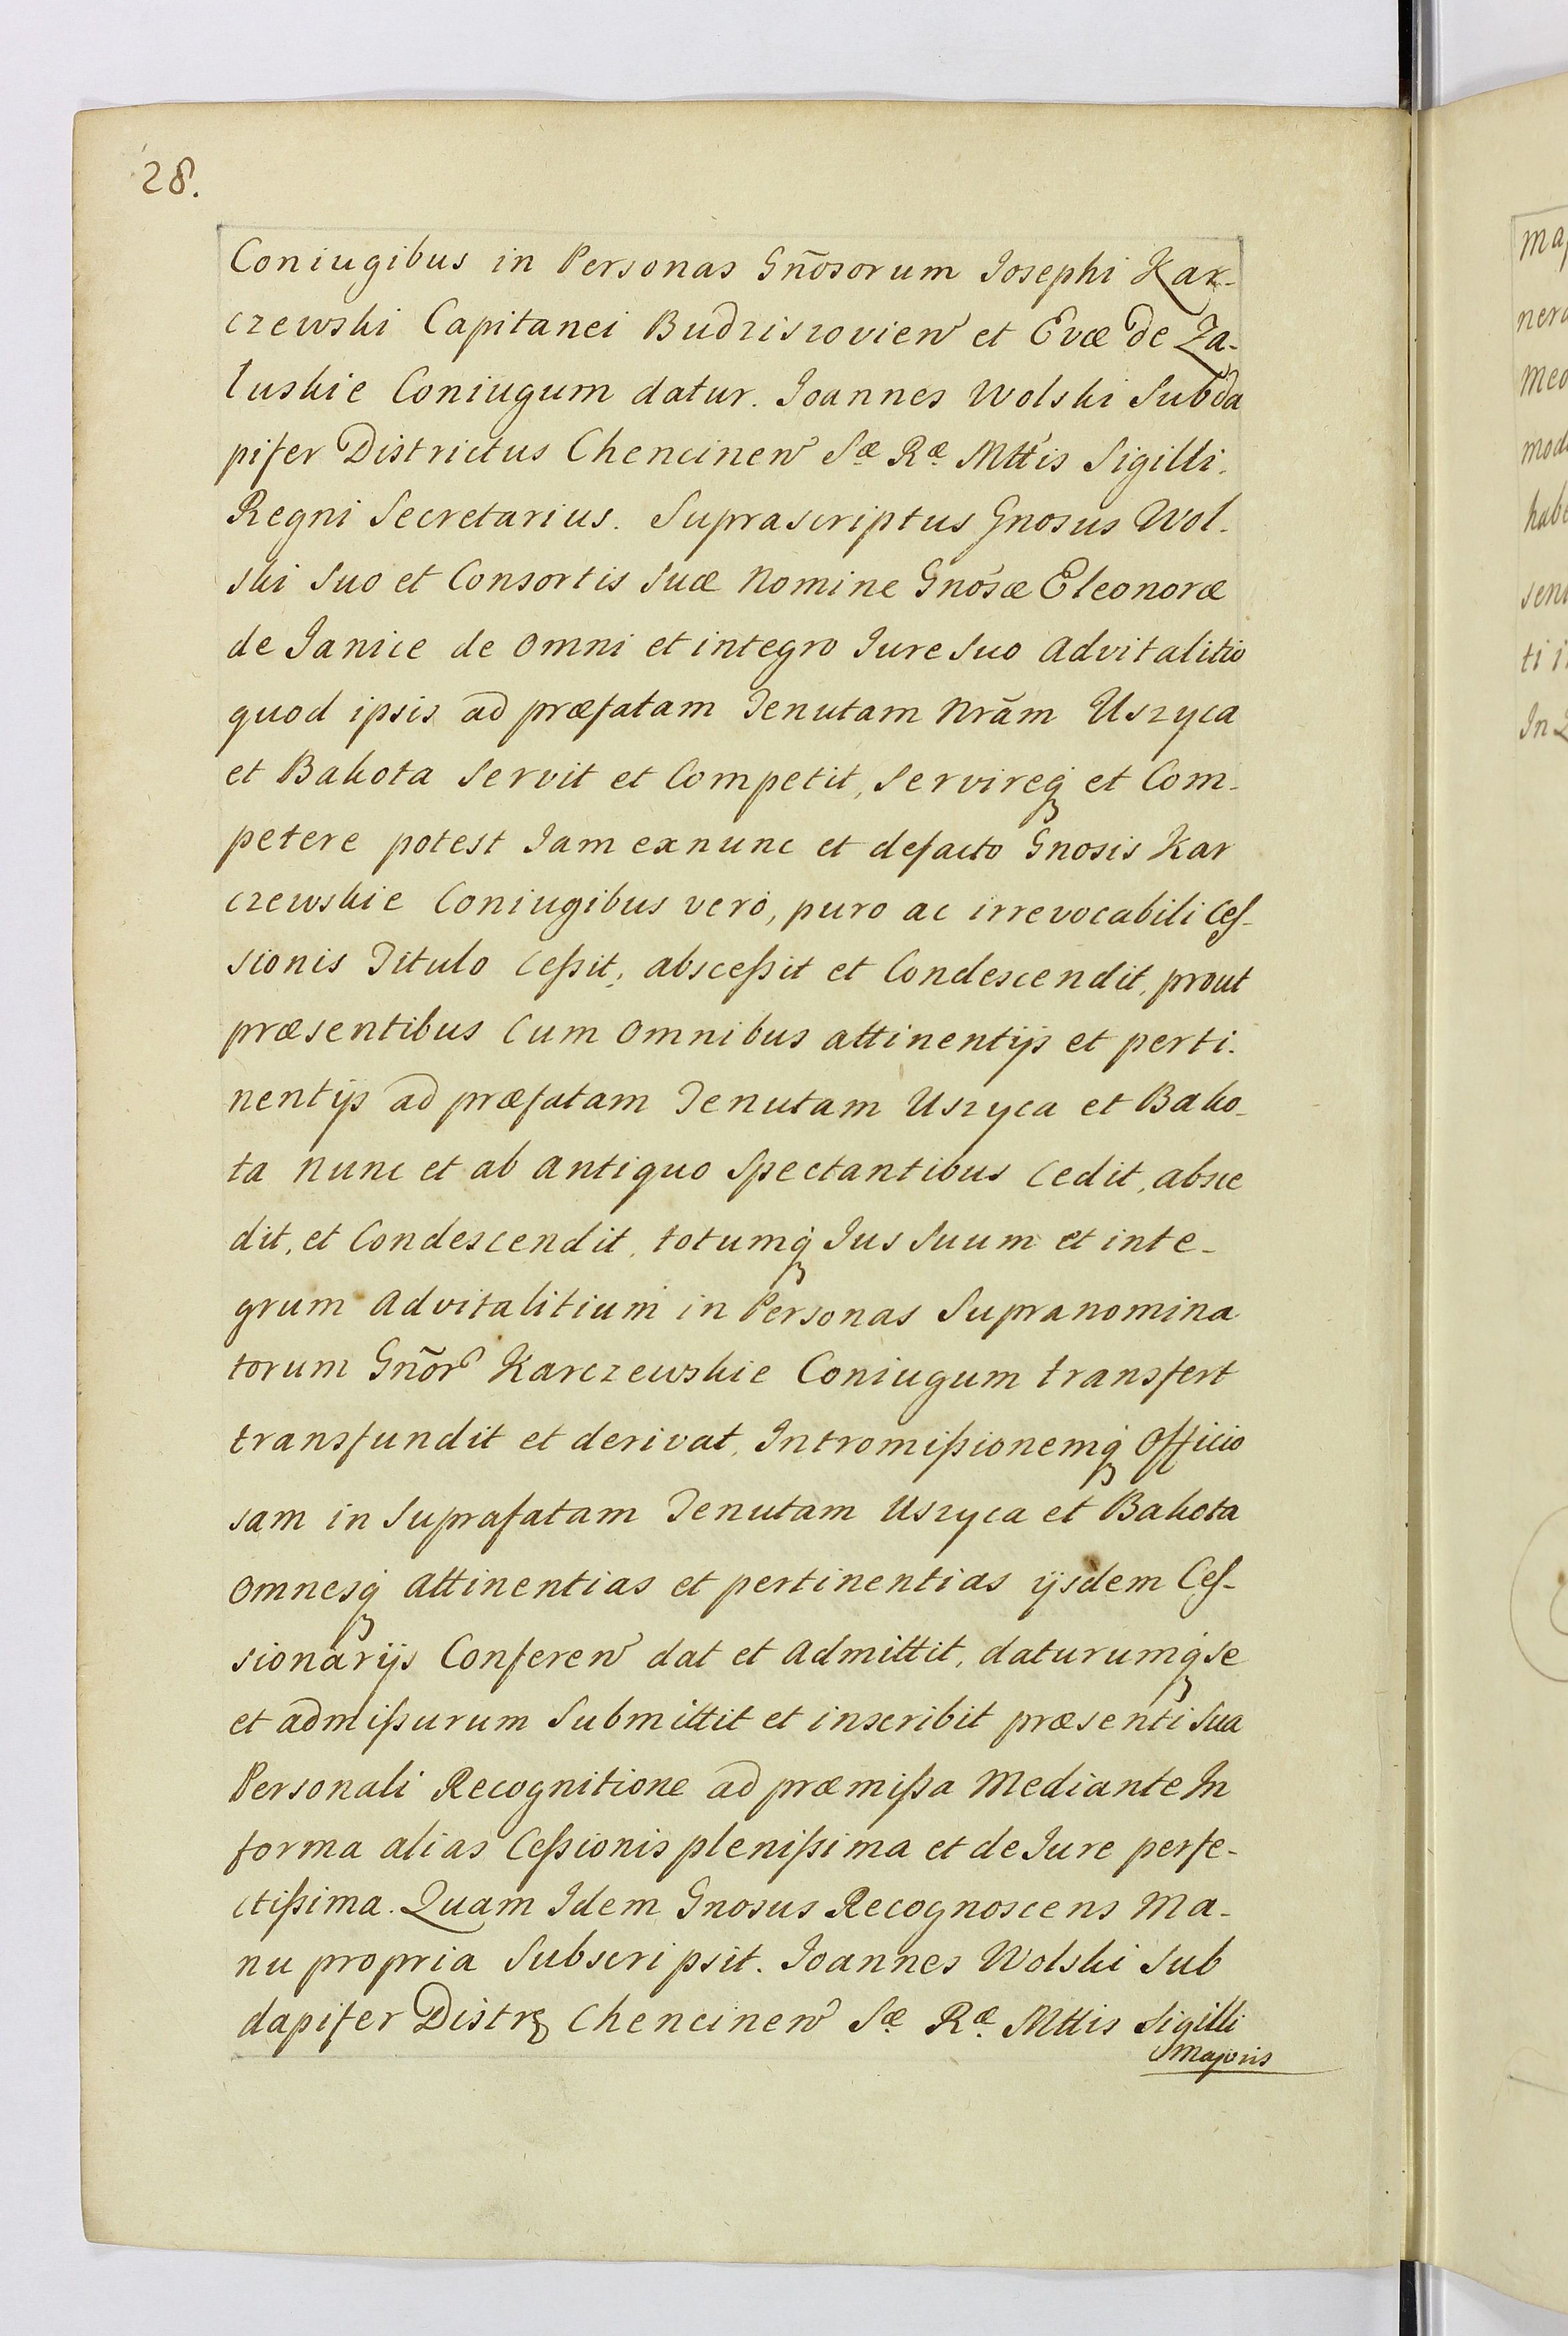 28.
Coniugibus in Personas Gñosorum Josephi Kar-
czewski Capitanei Budziszovien̄ et Evæ de Za-
łuskie Coniugum datur. Joannes Wolski Subda
pifer Districtus Chencinen̄ Sæ Ræ Mttis Sigilli.
Regni Secretarius. Suprascriptus Gnosus Wol-
ski Suo et Consortis Suæ Nomine Gnosæ Eleonoræ
de Janice de omni et integro Jure Suo Advitalitio
quod ipsis ad præfatam Tenutam Nrãm Uszyca
et Bakota Servit et Competit, Servireq̨ et Com-
petere potest Jam exnunc et defacto Gnosis Kar
czewskie Coniugibus vero, puro ac irrevocabili Ceſ-
sionis Titulo Ceſsit, absceſsit et Condescendit, prout
præsentibus Cum Omnibus attinentijs et perti-
nentijs ad præfatam Tenutam Uszyca et Bako-
ta nunc et ab Antiquo Spectantibus Cedit, absce
dit, et Condescendit, totumq̨ Jus Suum et inte-
grum Advitalitium in Personas Supranomina
torum Gñor̄ Karczewskie Coniugum transfert
transfundit et derivat, Intromiſsionemq̨ Officio
sam in Suprafatam Tenutam Uszyca et Bakota
Omnesq̨ Attinentias et pertinentias ijsdem Ceſ-
sionarijs Conferen̄ dat et Admittit, daturumq̨ se
et admiſsurum Submittit et inscribit præsenti Sua
Personali Recognitione ad præmiſsa Mediante In
forma alias Ceſsionis pleniſsima et de Jure perfe-
ctiſsima. Quam Idem Gnosus Recognoscens Ma-
nu propria Subscripsit. Joannes Wolski Sub
dapifer Distr̨ Chencinen̄ Sæ Ræ Mttis Sigilli
Majoris